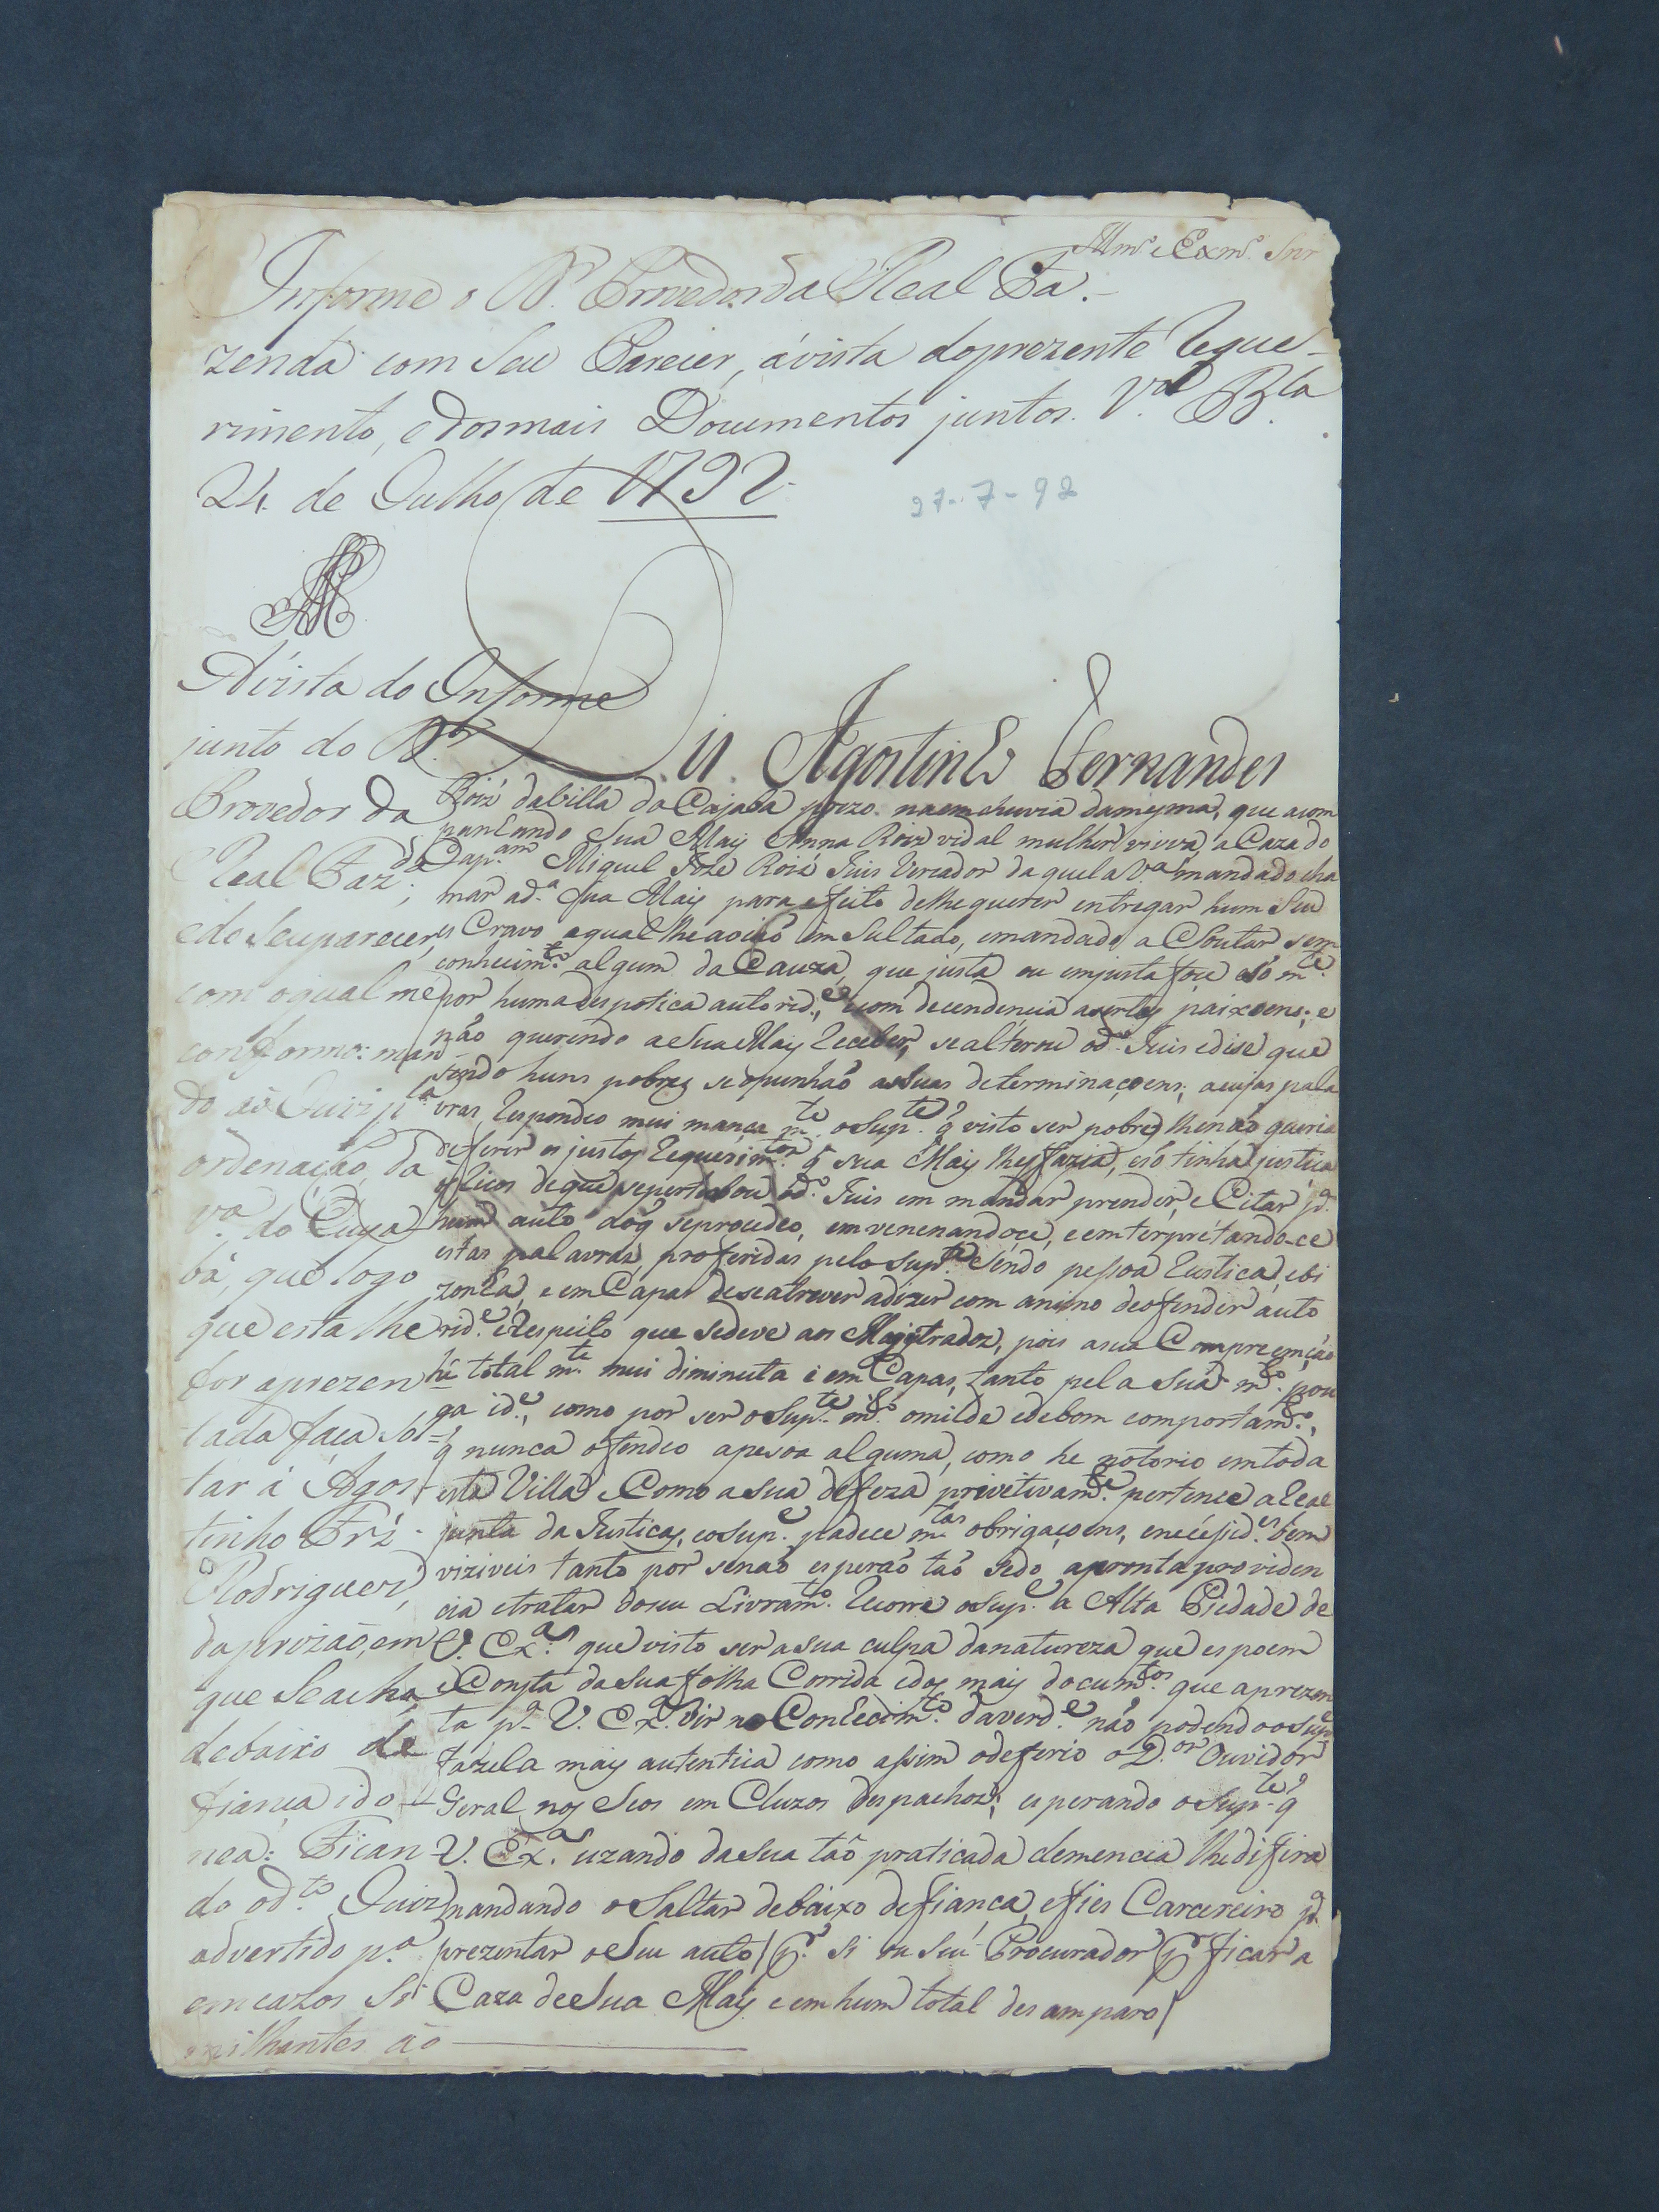 Illmº e Exmº Snr
Informe o Dr. Provedor da Real Fa-
zenda com seu Parecer, ávista do prezente Reque-
rimento, e dos mais Documentos juntos. Vª Bla
24 de Julho de 1792
27-7-92
Avista do Informe
junto do Dr.
Provedor da
Real Fazdª,
e do seu parecer,
com o qual me
conformo: man
do aó Juiz pla
ordenação, da
Vª do Cuya
bá, que logo
que esta lhe
for aprezen
tada faça sol-
tar á Agos-
tinho Frz
Rodrigues,
da prizaõ, em
que se acha,
debaixo de
fiança ido-
nea: Fican-
do o dto Juiz
advertido pª
em cazos si
milhantes ao
Diz Agostinho Fernandes
Roiz da Villa do Cujaba prezo na emchuvia da mesma, que acom
panhando Sua May Anna Roiz vidal mulher viuva, a Caza do
Capam Miguel Joze Roiz Juis Vereador da quela Vª mandado cha
mar a dª sua May para efeito de lhe querer entregar hum Seu
es Cravo a qual lhe avia õ im Sultado, e mandado a Soutar sem
conhecimto algum da Cauza, que justa ou emjusta foce e só mte
por huma despotica autoride, e com decendencia a sertas paixoens; e
não querendo a Sua May Receber, se alterou o dº Juis e dise que
sendo huns pobres se opunhaõ as Suas determinaçoens; a cujas pala
vras Respondeo mui mança mte o Supte q visto ser pobres lhe naõ queria
deferir os justos Requerimtos q sua May lhes fazia, e só tinha justiça
os Ricos de que se pertubou o dº. Juis em mandar prender, e Citar pª
hum auto do q se procedeo, em venenandoce, e emterpretando-ce
estas palavras proferidas pelo Supte Sendo pessoa Rustica, e bi
zonha, e em Capas de se atrever a dizer com animo de ofender a auto
ride. e Respeito que se deve aos Magistrados, pois a sua Compreenção
hé total mte mui diminuta e em Capas, tanto pela Sua mto pou
ca ide, como por ser o Supte mto omilde e de bom comportamto,
q nunca ofendeo a pesoa alguma, como he notorio em toda
esta Villa e Como a sua defeza privetivamte pertence a Real
junta da Justiças, e o Supe padece mtas obrigaçoens, e neceside bem
viziveis tanto por se naõ esperaõ taõ sedo a pronta providen
cia e tratar do seu Livramto. Recorre o Supe a Alta Piedade de
V. Exª que visto ser a sua culpa da natureza que espoem
e Consta da sua folha Corrida e dos mais documtos que aprezen
ta pª V. Exª vir no Conhecimto da verde não podendo o Supe
fazela mais autentica como asim o deferio o Dor Ouvidor
Geral nos Seos em Cluzos despachos; esperando o Supte q
V. Exª uzando da sua tão praticada clemencia lhe difira
mandando o Saltar debaixo de fiança, e fies Carcereiro pª
prezentar o Seu auto / Pr si ou Seu Procurador / Pr ficar a
Caza de Sua May e em hum total desamparo /